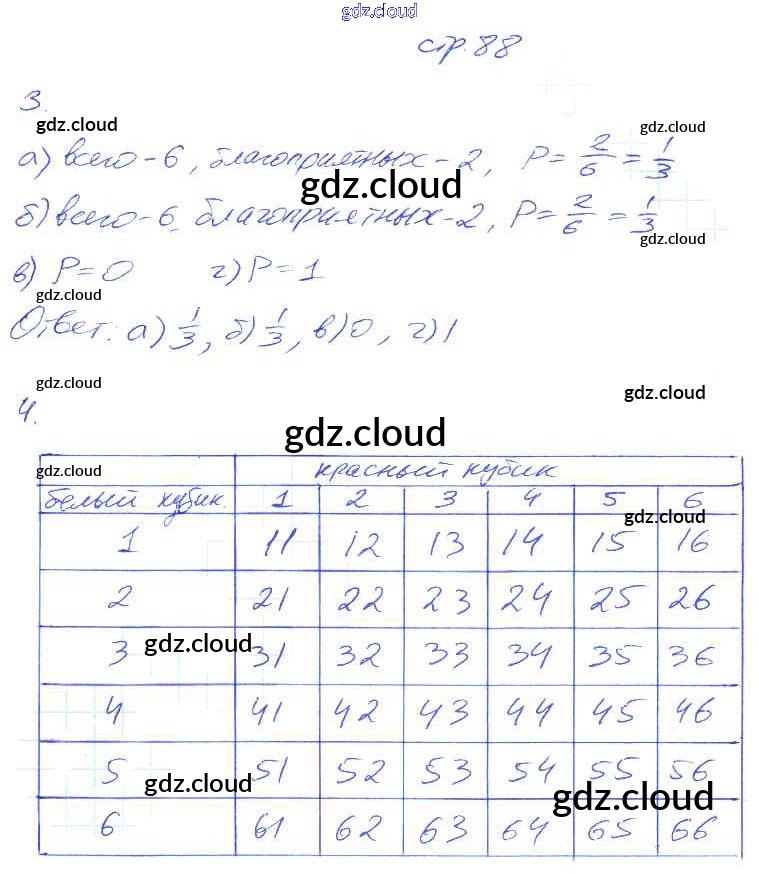 gdz.cloud
стр. 88
3.
gdz.cloud gdz.cloud
а) всего - 6, благоприятных - 2, P = 2/6 = 1/3
gdz.cloud
б) всего - 6, благоприятных - 2, P = 2/6 = 1/3
gdz.cloud
в) P = 0 г) P = 1
gdz.cloud
Ответ: а) 1/3, б) 1/3, в) 0, г) 1
gdz.cloud gdz.cloud
4.
gdz.cloud
gdz.cloud красный кубик
белый кубик. 1 2 3 4 5 6
gdz.cloud
1 11 12 13 14 15 16
2 21 22 23 24 25 26
gdz.cloud
3 31 32 33 34 35 36
4 41 42 43 44 45 46
5 51 52 53 54 55 56
gdz.cloud gdz.cloud
6 61 62 63 64 65 66